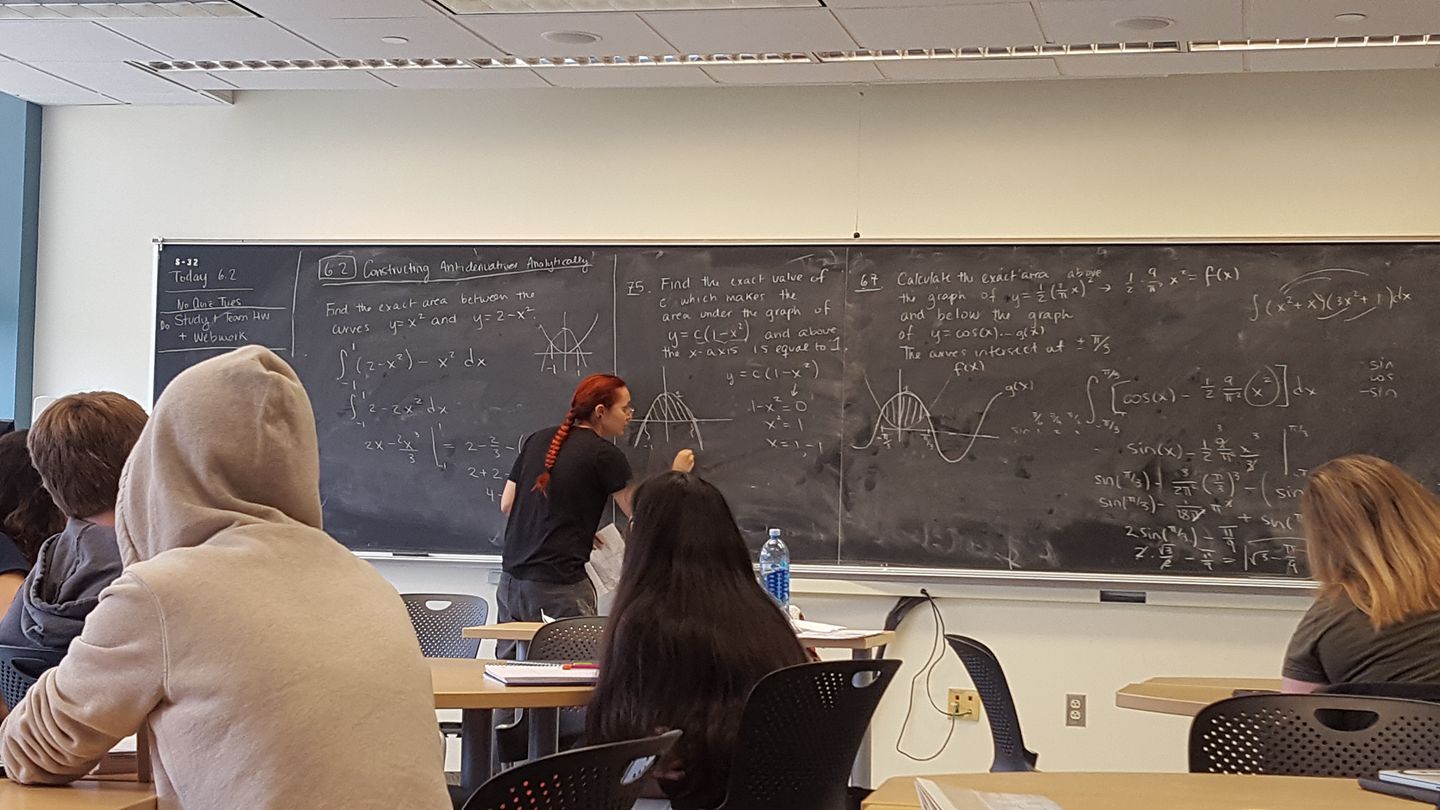 S-32
Today 6.2
No Quiz Tues
Do Study + Team HW
+ Webwork
6.2 Constructing Antiderivatives Analytically
Find the exact area between the
curves y=x² and y=2-x².
-1 1
∫₋₁¹ (2-x²) - x² dx
∫₋₁¹ 2-2x² dx
2x - 2x³/3 |₋₁¹ = 2 - 2/3 -
2+2-
4-
75. Find the exact value of
c which makes the
area under the graph of
y = c(1-x²) and above
the x-axis is equal to 1.
y = c(1-x²)
1-x² = 0
x² = 1
x = 1, -1
67 Calculate the exact area above
the graph of y = 1/2 (3/π x)² → 1/2 · 9/π² x² = f(x)
and below the graph
of y = cos(x). - g(x)
The curves intersect at ± π/3
f(x)
g(x)
-π/3 π/3
∫(x²+x)(3x²+1)dx
sin
cos
-sin
∫ [cos(x) - 1/2 9/π² x²] dx
π/3
-π/3
sin(x) - 1/2 9/π² x³/3 | π/3
sin(π/3) - 3/2π² (π/3)³ - (sin
sin(π/3) -
+ sin(
2sin(π/3) - π/9
2·√3/2 - π/9 = √3 - π/9